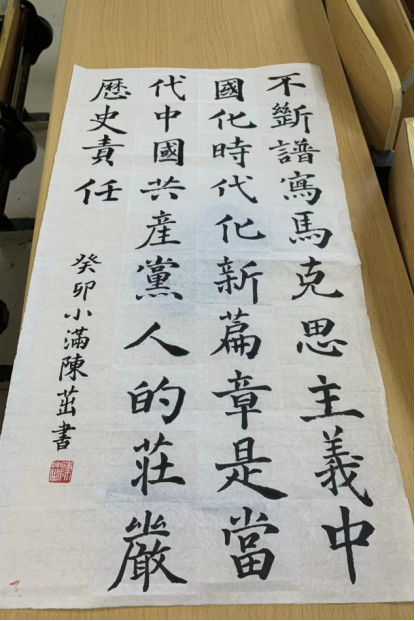 不斷譜寫馬克思主義中
國化時代化新篇章是當
代中國共產黨人的莊嚴
歷史責任
癸卯小滿陳茁書